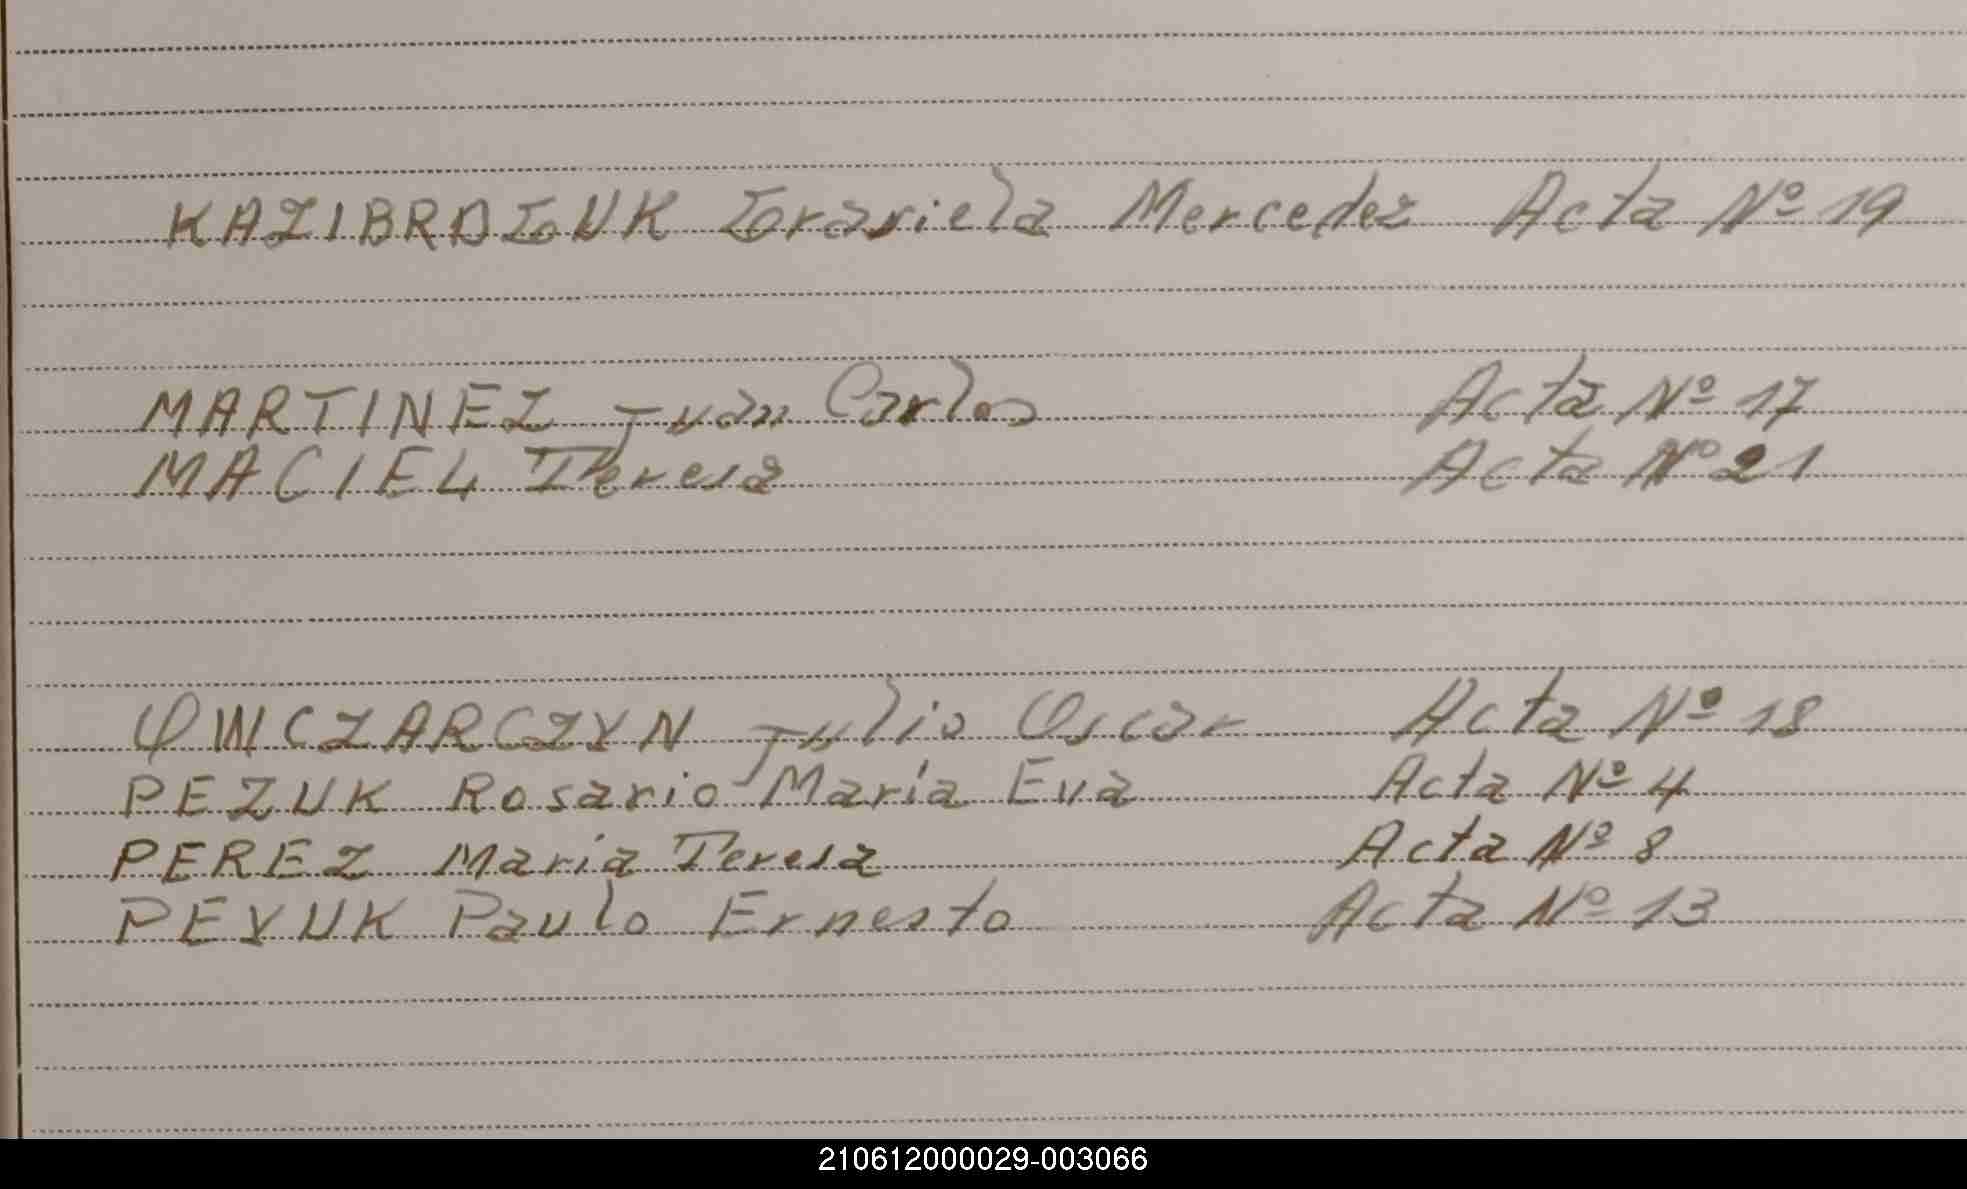 KAZIBRDGUK Grasiela Mercedez Acta Nº 19
MARTINEZ Juan Carlos Acta Nº 17
MACIEL Teresa Acta Nº 21
OWCZARCZYN Julio Oscar Acta Nº 18
PEZUK Rosario María Eva Acta Nº 4
PEREZ María Teresa Acta Nº 8
PEYUK Paulo Ernesto Acta Nº 13
210612000029-003066